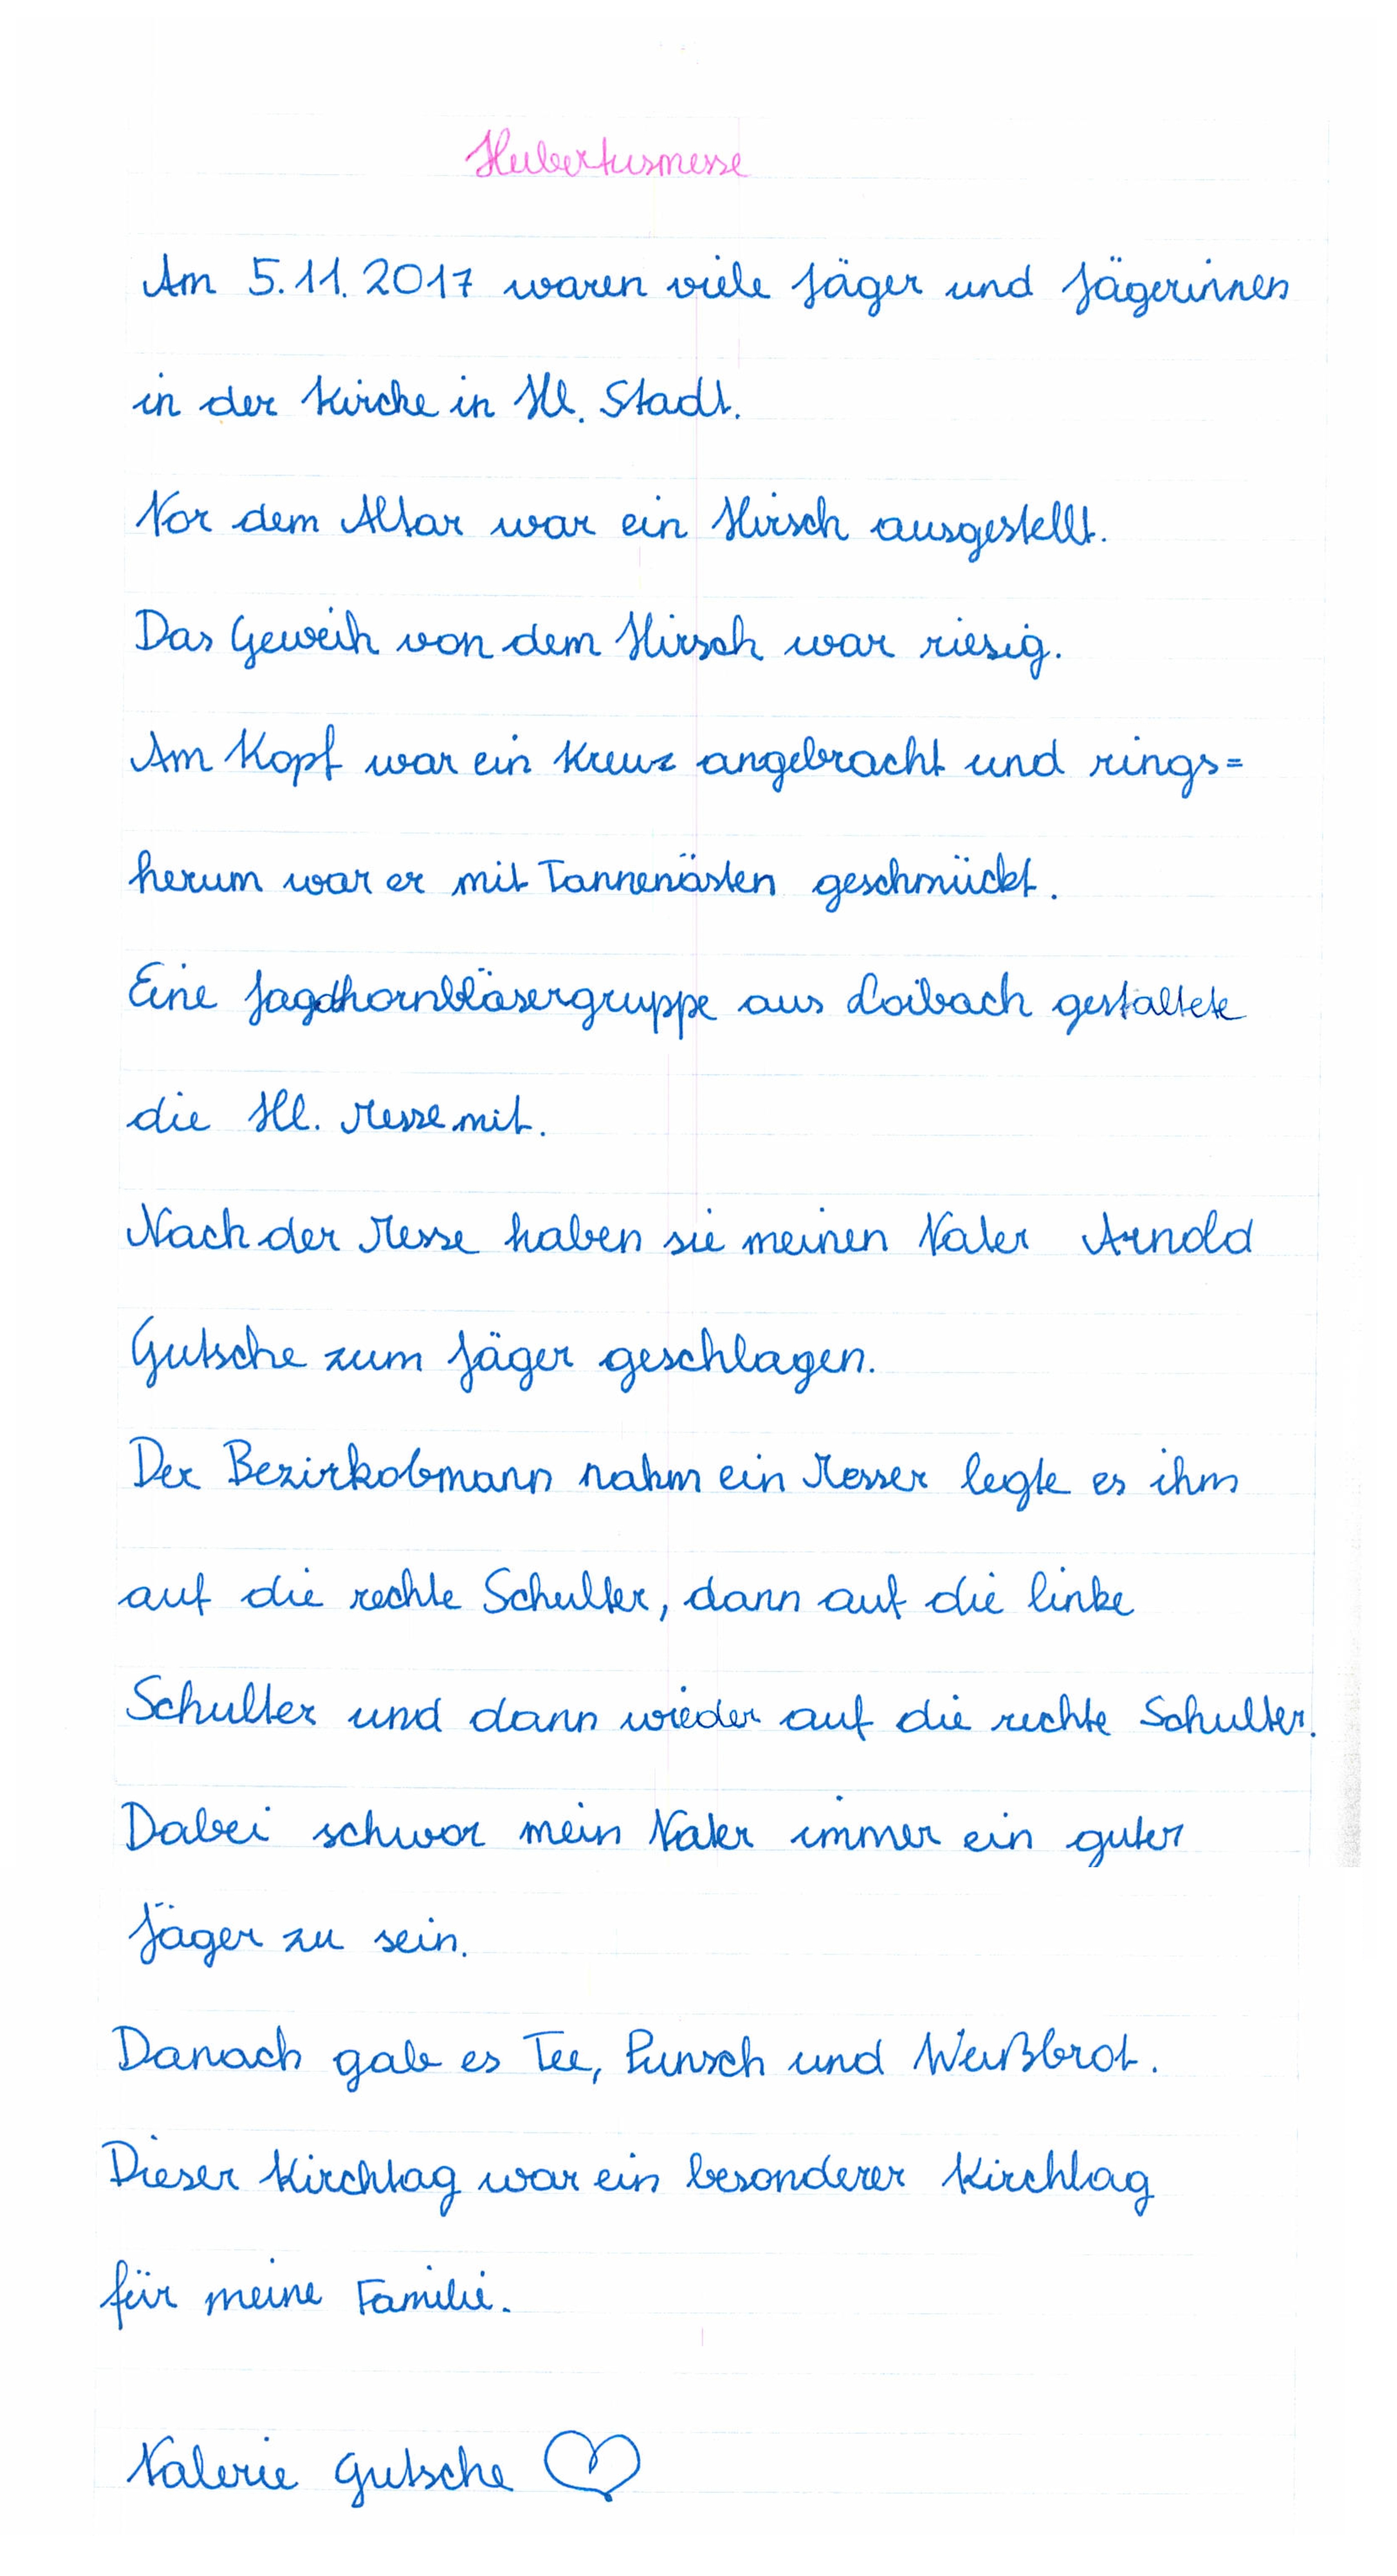 Hubertusmesse
Am 5.11.2017 waren viele Jäger und Jägerinnen
in der Kirche in Hl. Stadt.
Vor dem Altar war ein Hirsch ausgestellt.
Das Geweih von dem Hirsch war riesig.
Am Kopf war ein Kreuz angebracht und rings=
herum war er mit Tannenästen geschmückt.
Eine Jagdhornbläsergruppe aus Loibach gestaltete
die Hl. Messe mit.
Nach der Messe haben sie meinen Vater Arnold
Gutsche zum Jäger geschlagen.
Der Bezirkobmann nahm ein Messer legte es ihm
auf die rechte Schulter, dann auf die linke
Schulter und dann wieder auf die rechte Schulter.
Dabei schwor mein Vater immer ein guter
Jäger zu sein.
Danach gab es Tee, Punsch und Weißbrot.
Dieser Kirchtag war ein besonderer Kirchtag
für meine Familie.
Valerie Gutsche